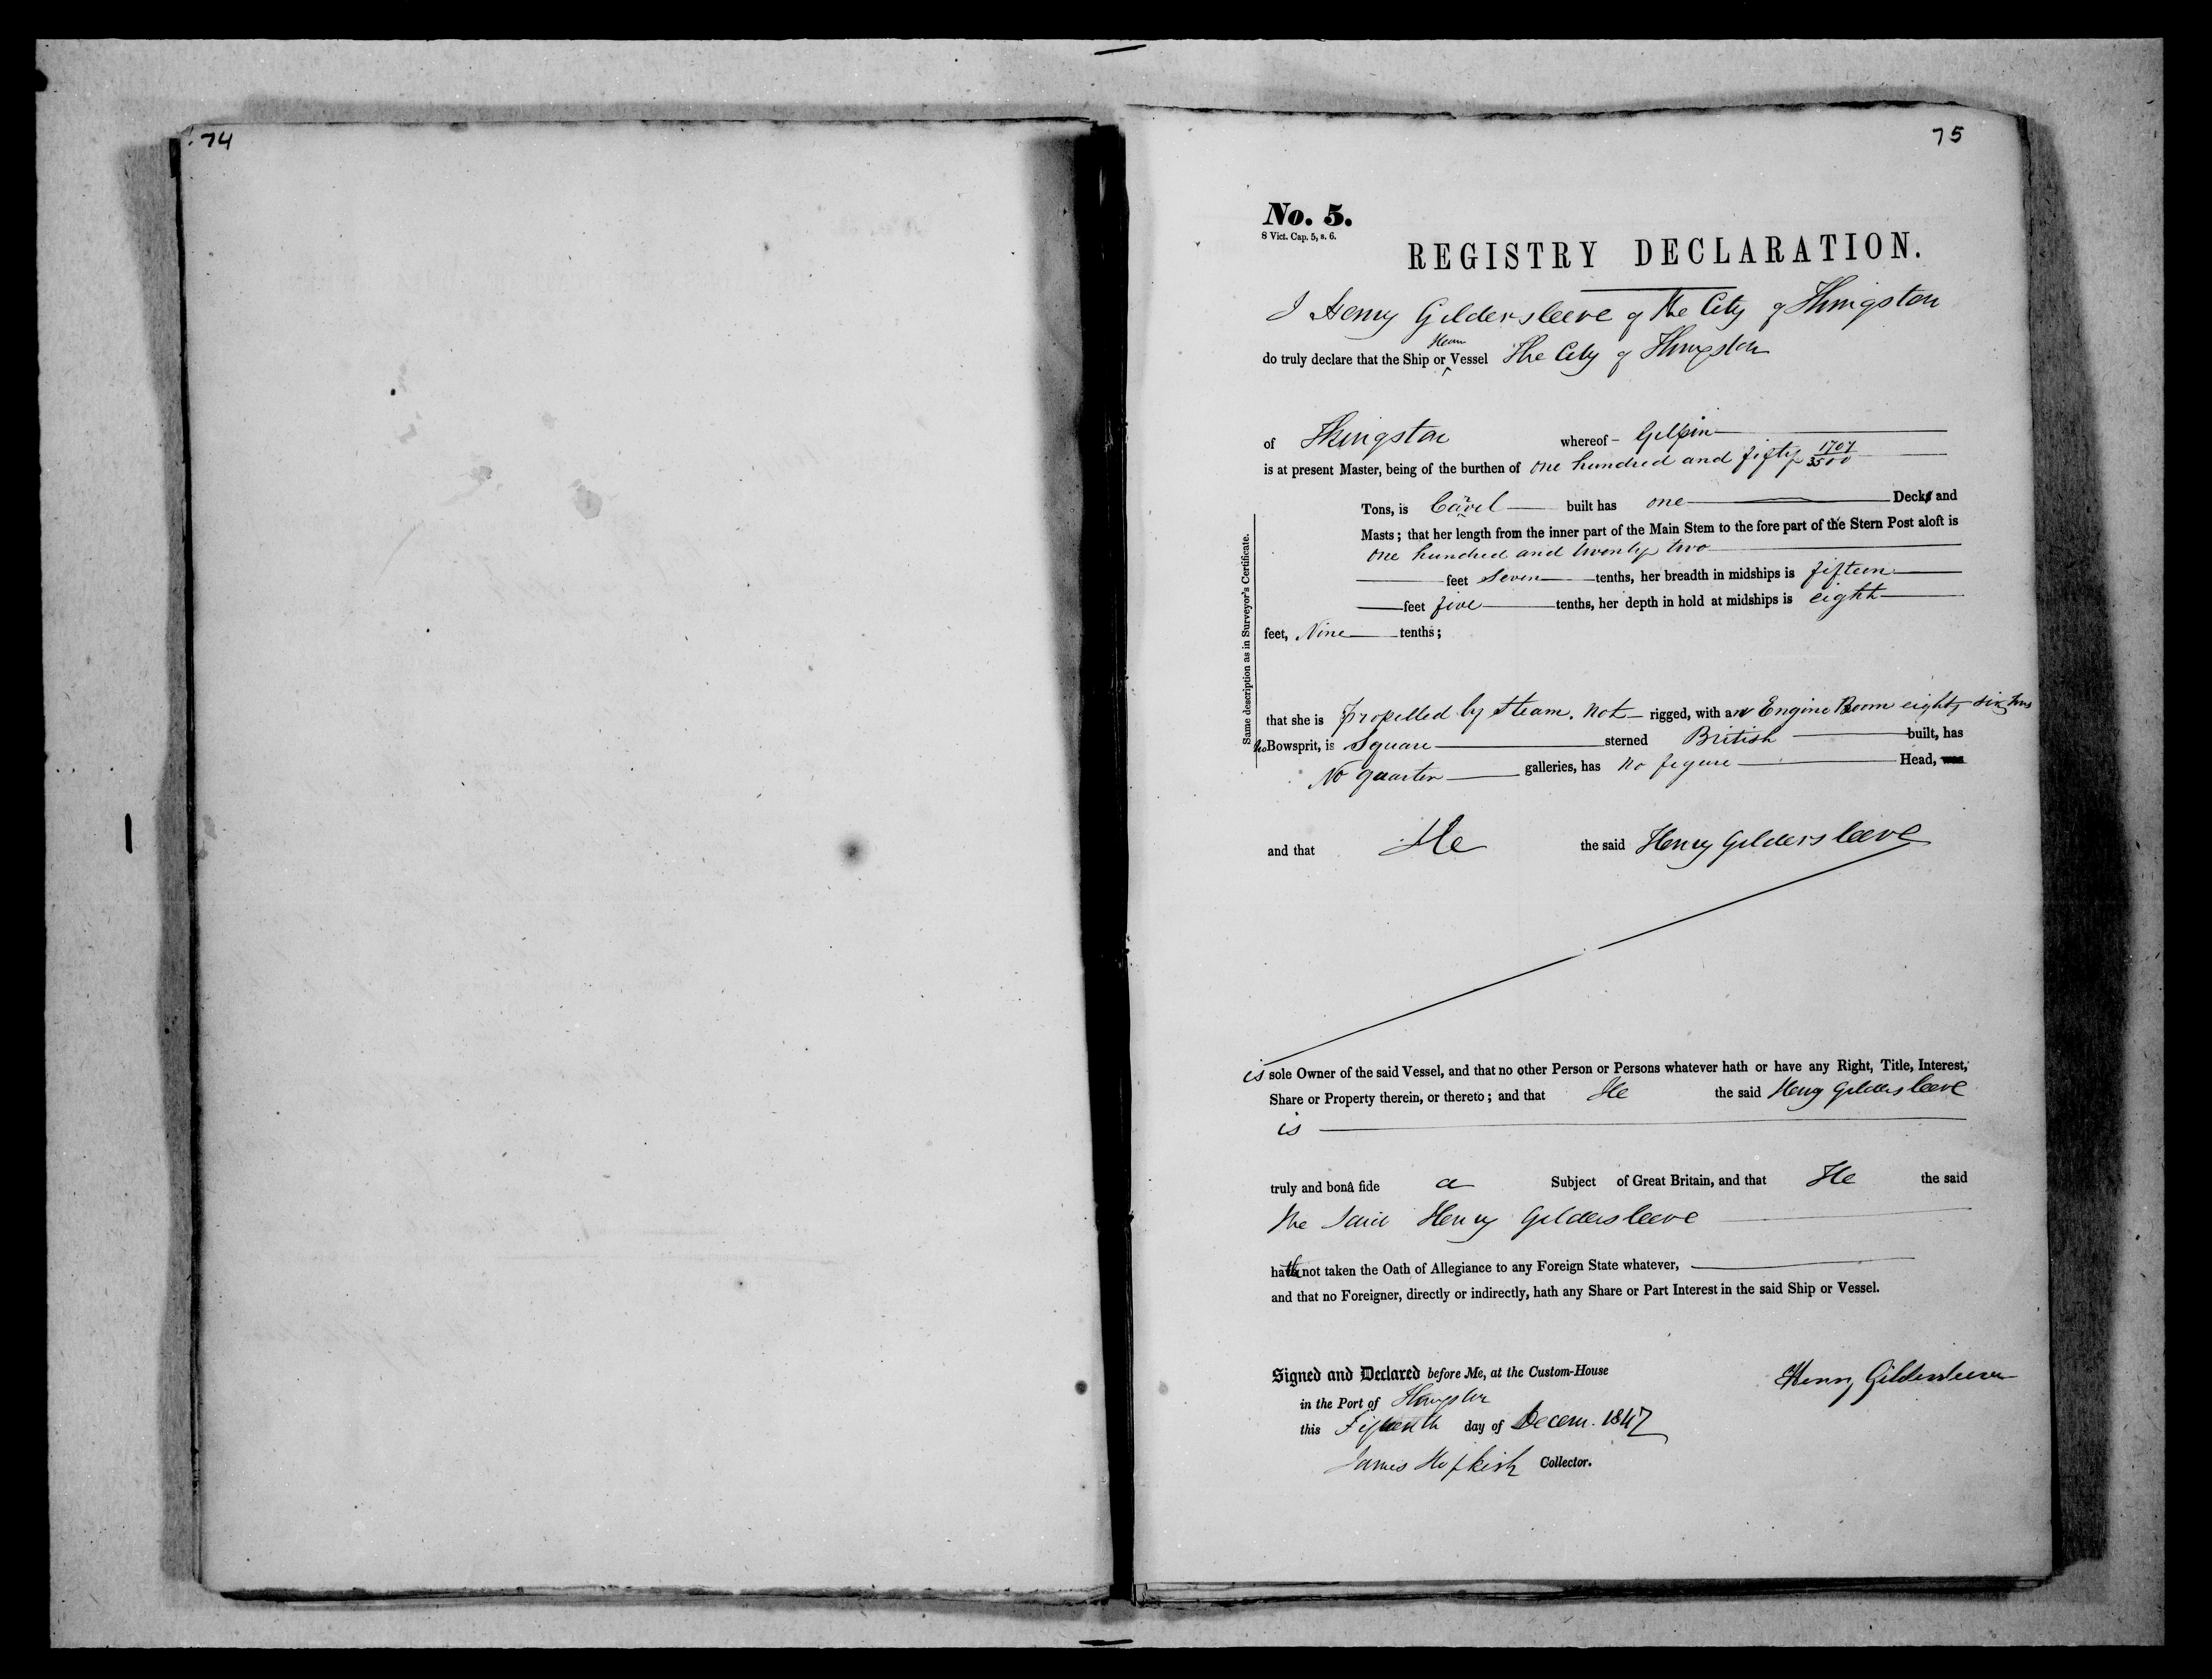 74
75
No. 5.
8 Vict. Cap. 5, s. 6.
REGISTRY DECLARATION.
I Henry Gildersleeve of the City of Kingston
do truly declare that the Ship or Steam Vessel The City of Kingston
of Kingston whereof - Gilpin
is at present Master, being of the burthen of one hundred and fifty 1707/3500
Tons, is Carvel built has one Deck and
Masts; that her length from the inner part of the Main Stem to the fore part of the Stern Post aloft is
one hundred and twenty two
feet Seven tenths, her breadth in midships is fifteen
feet five tenths, her depth in hold at midships is eight
feet, Nine tenths;
Same description as in Surveyor's Certificate.
that she is propelled by Steam. not rigged, with an Engine Room eighty six Tons
no Bowsprit, is Square sterned British built, has
No quarter galleries, has no figure Head, was
and that He the said Henry Gildersleeve
is sole Owner of the said Vessel, and that no other Person or Persons whatever hath or have any Right, Title, Interest,
Share or Property therein, or thereto; and that He the said Henry Gildersleeve
is
truly and bonâ fide a Subject of Great Britain, and that He the said
the Said Henry Gildersleeve
hath not taken the Oath of Allegiance to any Foreign State whatever,
and that no Foreigner, directly or indirectly, hath any Share or Part Interest in the said Ship or Vessel.
Signed and Declared before Me, at the Custom-House
in the Port of Kingston
this Fifteenth day of Decem. 1847
Henry Gildersleeve
James Hopkirk Collector.